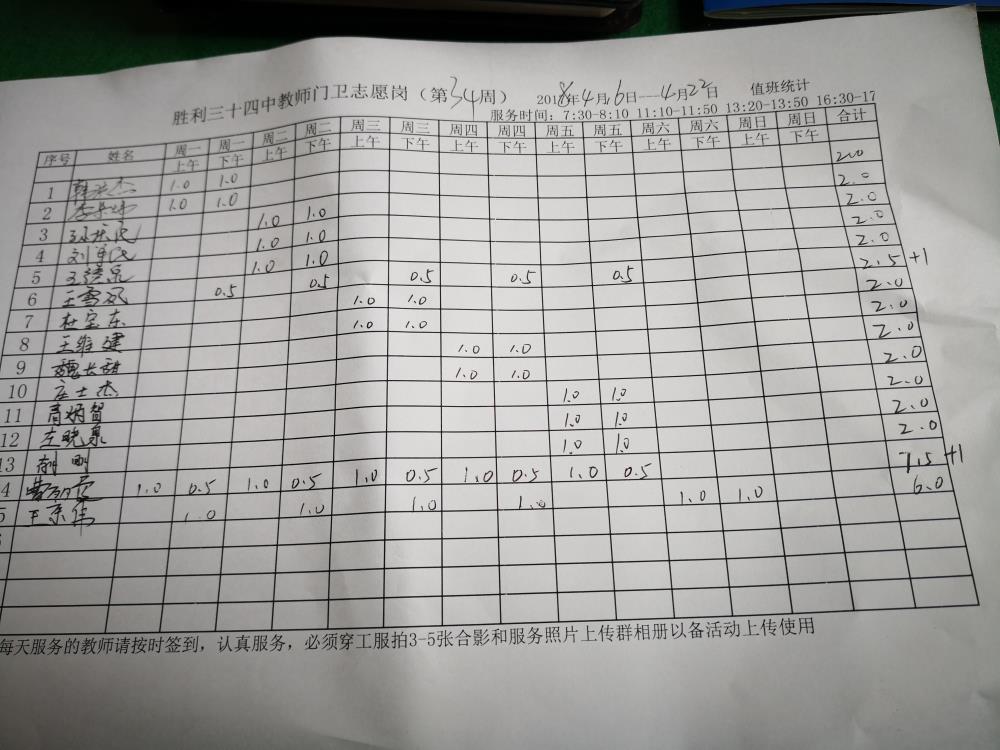 胜利三十四中教师门卫志愿岗（第34周） 2018年4月16日---4月22日 值班统计
服务时间：7:30-8:10 11:10-11:50 13:20-13:50 16:30-17
序号 姓名 周一上午 周一下午 周二上午 周二下午 周三上午 周三下午 周四上午 周四下午 周五上午 周五下午 周六上午 周六下午 周日上午 周日下午 合计
1 1.0 1.0 2.0
2 1.0 1.0 2.0
3 1.0 1.0 2.0
4 刘军民 1.0 1.0 2.0
5 1.0 1.0 2.0
6 王雪 0.5 0.5 0.5 0.5 0.5 2.5 +1
7 杜宝东 1.0 1.0 2.0
8 王维建 1.0 1.0 2.0
9 魏长 1.0 1.0 2.0
10 庄士杰 1.0 1.0 2.0
11 1.0 1.0 2.0
12 左晓泉 1.0 1.0 2.0
13 刚 1.0 1.0 2.0
4 1.0 0.5 1.0 0.5 1.0 0.5 1.0 0.5 1.0 0.5 7.5 +1
5 王京伟 1.0 1.0 1.0 1.0 1.0 1.0 6.0
每天服务的教师请按时签到，认真服务，必须穿工服拍3-5张合影和服务照片上传群相册以备活动上传使用